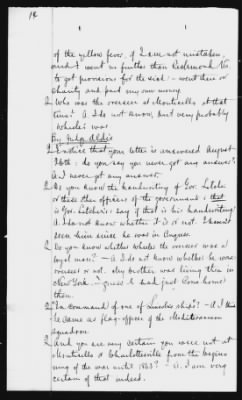 of the yellow fever, if I am not mistaken,
and I went no further than Richmond Va.
to get provisions for the sick:- went there on
charity and paid my own money.
Q. Who was the overseer at Monticello at that
time? A. I do not know, but very probably
Wheeler was.
By Judge Aldis
Q. I notice that your letter is answered August
26th: do you say you never got any answer?
A. I never got any answer.
Q. Do you know the handwriting of Gov. Letcher
or these other officers of the government: that
is Gov. Letcher's: say if that is his handwriting
A. I do not know whether it is or not. I haven't
seen him since he was in Congress.
Q. Do you know whether Wheeler the overseer was a
loyal man? - A. I do not know whether he was
overseer or not. My brother was living then in
New York. I had just come home
then.
Q. In command of one of Lincoln's ships? - A. I
came as flag-officer of the Mediterranean
squadron.
Q. And you are very certain you were not at
Monticello or Charlottesville from the begin
ning of the war until 1863? - A. I am very
certain of that indeed.